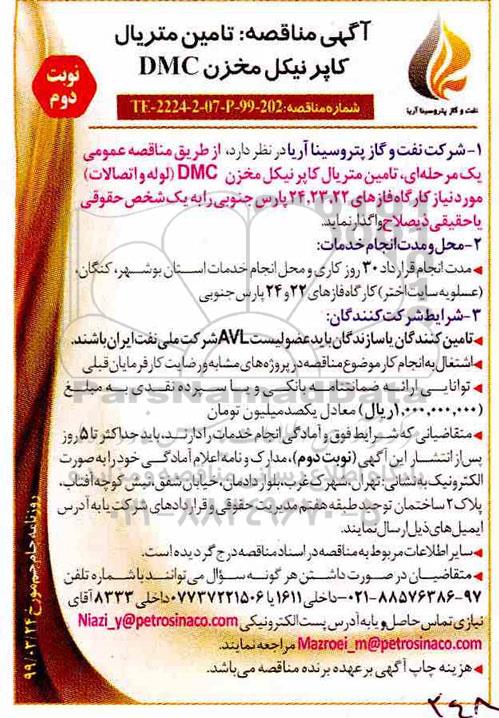 آگهی مناقصه: تامین متریال
کاپر نیکل مخزن DMC
نوبت
دوم
نفت و گاز پتروسینا آریا
شماره مناقصه: TE-2224-2-07-P-99-202
۱- شرکت نفت و گاز پتروسینا آریا در نظر دارد، از طریق مناقصه عمومی
یک مرحله‌ای، تامین متریال کاپر نیکل مخزن DMC (لوله و اتصالات)
مورد نیاز کارگاه فازهای ۲۴،۲۳،۲۲ پارس جنوبی را به یک شخص حقوقی
یا حقیقی ذیصلاح واگذار نماید.
۲- محل و مدت انجام خدمات:
مدت انجام قرارداد ۳۰ روز کاری و محل انجام خدمات استان بوشهر، کنگان،
(عسلویه سایت اختر) کارگاه فازهای ۲۲ و ۲۴ پارس جنوبی
۳- شرایط شرکت کنندگان:
تامین کنندگان یا سازندگان باید عضو لیست AVL شرکت ملی نفت ایران باشند.
اشتغال به انجام کار موضوع مناقصه در پروژه‌های مشابه و رضایت کارفرمایان قبلی
توانایی ارائه ضمانتنامه بانکی و یا سپرده نقدی به مبلغ
(۱,۰۰۰,۰۰۰,۰۰۰ ریال) معادل یکصد میلیون تومان
متقاضیانی که شرایط فوق و آمادگی انجام خدمات را دارند، باید حداکثر تا ۵ روز
پس از انتشار این آگهی (نوبت دوم)، مدارک و نامه اعلام آمادگی خود را به صورت
الکترونیک به نشانی: تهران، شهرک غرب، بلوار دادمان، خیابان شفق، نبش کوچه آفتاب،
پلاک ۲ ساختمان توحید طبقه هفتم مدیریت حقوقی و قراردادهای شرکت یا به آدرس
ایمیل‌های ذیل ارسال نمایند.
سایر اطلاعات مربوط به مناقصه در اسناد مناقصه درج گردیده است.
متقاضیان در صورت داشتن هر گونه سؤال می‌توانند با شماره تلفن
۹۷-۸۸۵۷۶۳۸۶-۰۲۱ داخلی ۱۶۱۱ یا ۰۷۷۳۷۲۲۱۵۰۶ داخلی ۸۳۳۳ آقای
نیازی تماس حاصل و یا به آدرس پست الکترونیکی Niazi_y@petrosinaco.com
Mazroei_m@petrosinaco.com مراجعه نمایند.
هزینه چاپ آگهی بر عهده برنده مناقصه می‌باشد.
روزنامه جام جم مورخ ۹۹/۰۳/۲۴
ParsNamadData
۰۲۱-۸۸۳۴۹۶۷۰-۵
۲۴۸